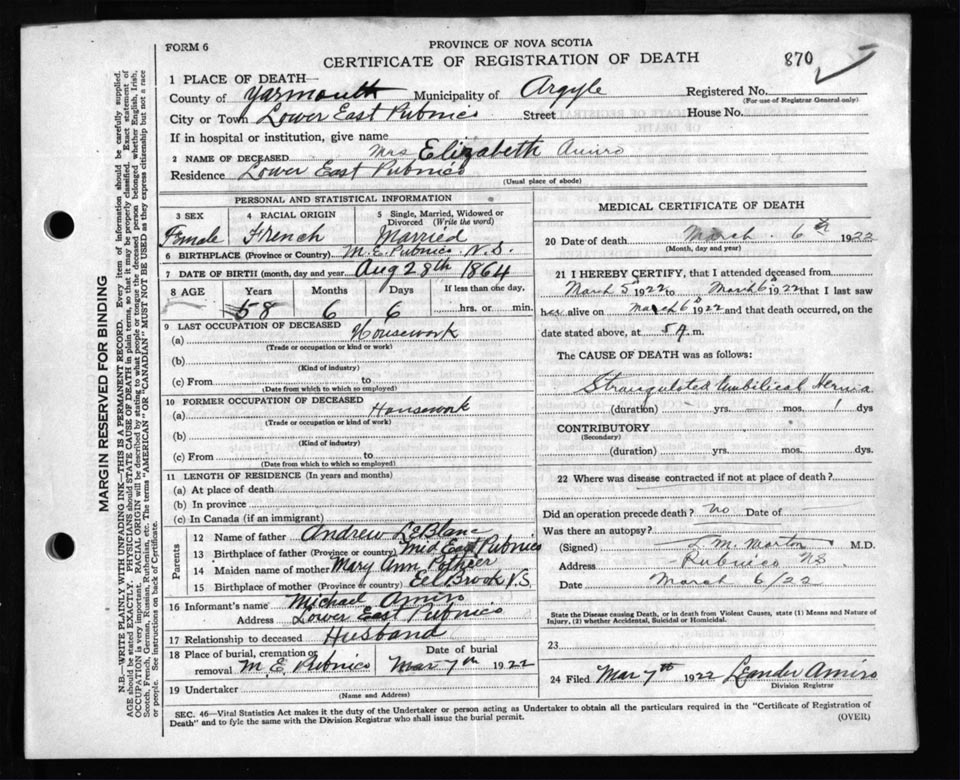 FORM 6
PROVINCE OF NOVA SCOTIA
CERTIFICATE OF REGISTRATION OF DEATH
870
1 PLACE OF DEATH—
County of Yarmouth Municipality of Argyle Registered No.
(For use of Registrar General only)
City or Town Lower East Pubnico Street House No.
If in hospital or institution, give name
2 NAME OF DECEASED Mrs Elizabeth Amiro
Residence Lower East Pubnico
(Usual place of abode)
PERSONAL AND STATISTICAL INFORMATION
3 SEX
Female
4 RACIAL ORIGIN
French
5 Single, Married, Widowed or Divorced (Write the word)
Married
6 BIRTHPLACE (Province or Country) M. E. Pubnico, N.S.
7 DATE OF BIRTH (month, day and year) Aug 28th 1864
8 AGE Years Months Days If less than one day,
58 6 6 hrs. or min.
9 LAST OCCUPATION OF DECEASED
(a) Housework
(Trade or occupation or kind or work)
(b)
(Kind of industry)
(c) From to
(Date from which to which so employed)
10 FORMER OCCUPATION OF DECEASED
(a) Housework
(Trade or occupation or kind of work)
(b)
(Kind of industry)
(c) From to
(Date from which to which so employed)
11 LENGTH OF RESIDENCE (In years and months)
(a) At place of death
(b) In province
(c) In Canada (if an immigrant)
Parents
12 Name of father Andrew LeBlanc
13 Birthplace of father (Province or country) Mid East Pubnico
14 Maiden name of mother Mary Ann Pothier
15 Birthplace of mother (Province or country) Eel Brook N.S.
16 Informant's name Michael Amiro
Address Lower East Pubnico
17 Relationship to deceased Husband
18 Place of burial, cremation or removal M. E. Pubnico
Date of burial
Mar 7th 1922
19 Undertaker
(Name and Address)
MEDICAL CERTIFICATE OF DEATH
20 Date of death March 6th 1922
(Month, day and year)
21 I HEREBY CERTIFY, that I attended deceased from
March 5 1922 to March 6 1922 that I last saw
her alive on March 6 1922 and that death occurred, on the
date stated above, at 5 A. m.
The CAUSE OF DEATH was as follows:
Strangulated Umbilical Hernia
(duration) yrs. mos. 1 dys
CONTRIBUTORY
(Secondary)
(duration) yrs. mos. dys.
22 Where was disease contracted if not at place of death?
Did an operation precede death? no Date of
Was there an autopsy?
(Signed) L. M. Morton M.D.
Address Pubnico NS
Date March 6/22
State the Disease causing Death, or in death from Violent Causes, state (1) Means and Nature of
Injury, (2) whether Accidental, Suicidal or Homicidal.
23
24 Filed Mar 7th 1922 Leander Amiro
Division Registrar
SEC. 46—Vital Statistics Act makes it the duty of the Undertaker or person acting as Undertaker to obtain all the particulars required in the "Certificate of Registration of
Death" and to fyle the same with the Division Registrar who shall issue the burial permit.
(OVER)
MARGIN RESERVED FOR BINDING
N.B.—WRITE PLAINLY WITH UNFADING INK—THIS IS A PERMANENT RECORD. Every item of information should be carefully supplied.
AGE should be stated EXACTLY. PHYSICIANS should STATE CAUSE OF DEATH in plain terms, so that it may be properly classified. Exact statement of
OCCUPATION is very important. RACIAL ORIGIN will be described by stating to what people or tongue the deceased person belonged whether English, Irish,
Scotch, French, German, Russian, Ruthenian, etc. The terms "AMERICAN" OR "CANADIAN" MUST NOT BE USED as they express citizenship but not a race
or people. See instructions on back of Certificate.